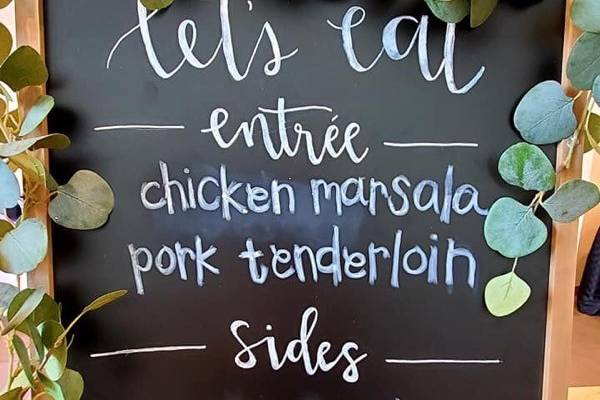 let's eat
entrée
chicken marsala
pork tenderloin
sides